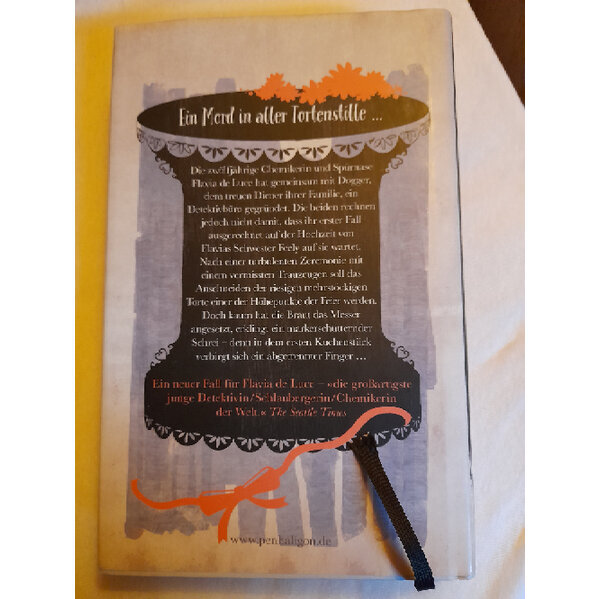 Ein Mord in aller Tortenstille ...
Die zwölfjährige Chemikerin und Spürnase
Flavia de Luce hat gemeinsam mit Dogger,
dem treuen Diener ihrer Familie, ein
Detektivbüro gegründet. Die beiden rechnen
jedoch nicht damit, dass ihr erster Fall
ausgerechnet auf der Hochzeit von
Flavias Schwester Feely auf sie wartet.
Nach einer turbulenten Zeremonie mit
einem vermissten Trauzeugen soll das
Anschneiden der riesigen mehrstöckigen
Torte einer der Höhepunkte der Feier werden.
Doch kaum hat die Braut das Messer
angesetzt, erklingt ein markerschütternder
Schrei – denn in dem ersten Kuchenstück
verbirgt sich ein abgetrennter Finger ...
Ein neuer Fall für Flavia de Luce – »die großartigste
junge Detektivin/Schlaubergerin/Chemikerin
der Welt.« The Seattle Times
www.penhaligon.de